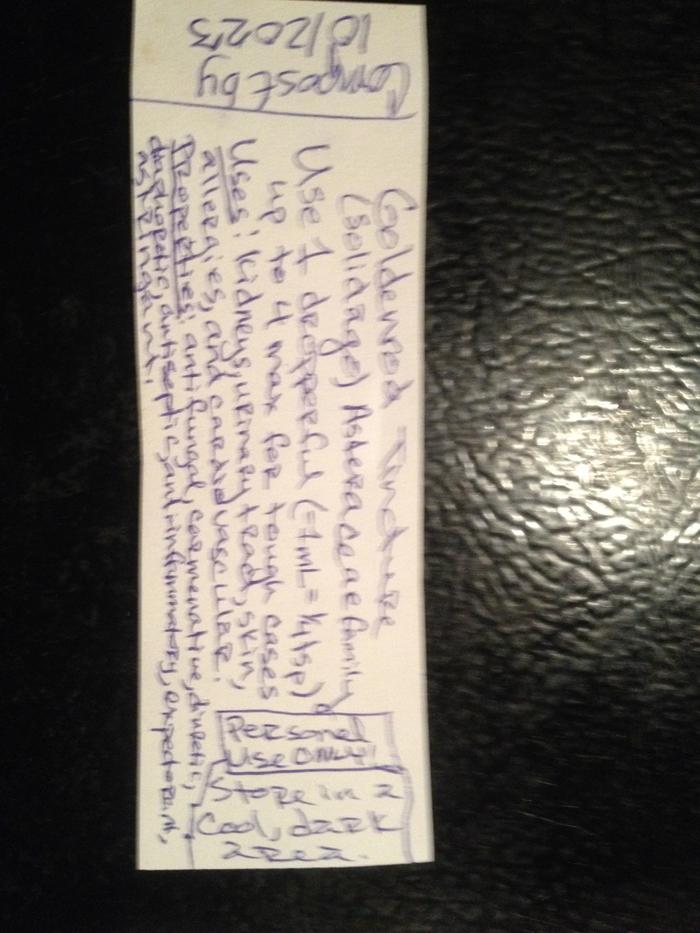 Goldenrod Tincture
(Solidago) Asteraceae family
Use 1 dropperful (=1mL = 1/4 tsp)
up to 4 max for tough cases
Uses: kidneys, urinary tract, skin,
allergies, and cardiovascular.
Properties: antifungal, carminative, diuretic,
diaphoretic, antiseptic, antiinflammatory, expectorant,
astringent.
Personal
Use ONLY!
Store in a
cool, dark
area.
Compost by
10/2023